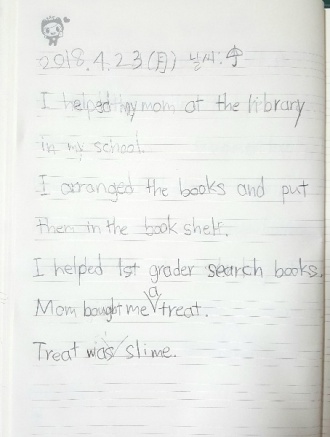 2018.4.23(月) 날씨:우
I helped my mom at the library
in my school.
I arranged the books and put
them in the book shelf.
I helped 1st grader search books.
Mom bought me a treat.
Treat was slime.